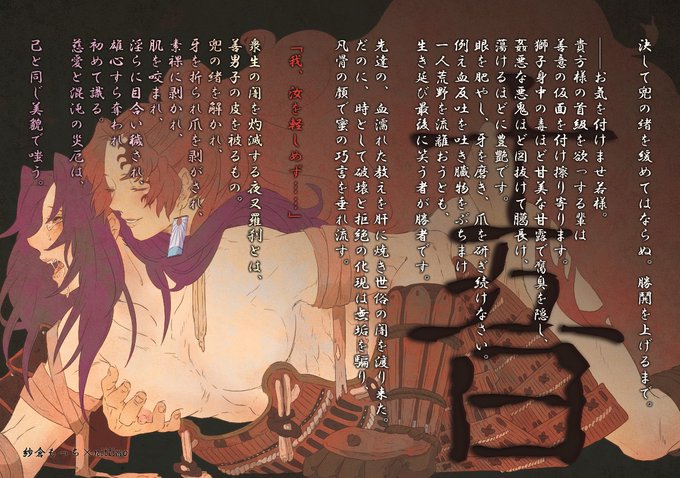 決して兜の緒を緩めてはならぬ。勝鬨を上げるまで。
――お気を付けませ若様。
貴方様の首級を欲っする輩は
善意の仮面を付け擦り寄ります。
獅子身中の毒ほど甘美な甘露で腐臭を隠し、
姦悪な悪鬼ほど図抜けて臈長け、
蕩けるほどに豊艶です。
眼を肥やし、牙を磨き、爪を研ぎ続けなさい。
例え血反吐を吐き臓物をぶちまけ
一人荒野を流離おうとも、
生き延び最後に笑う者が勝者です。
先達の、血濡れた教えを肝に焼き世俗の闇を渡り来た。
だのに、時として破壊と拒絶の化現は無垢を騙り、
凡骨の顔で蜜の巧言を垂れ流す。
『我、汝を軽しめず……』
衆生の闇を灼滅する夜叉羅刹とは、
善男子の皮を被るもの。
兜の緒を解かれ、
牙を折られ爪を剥がされ、
素裸に剥かれ、
肌を咬まれ、
淫らに目合い穢され、
雄心すら奪われ
初めて識る。
慈愛と混沌の炎厄は、
己と同じ美貌で嗤う。